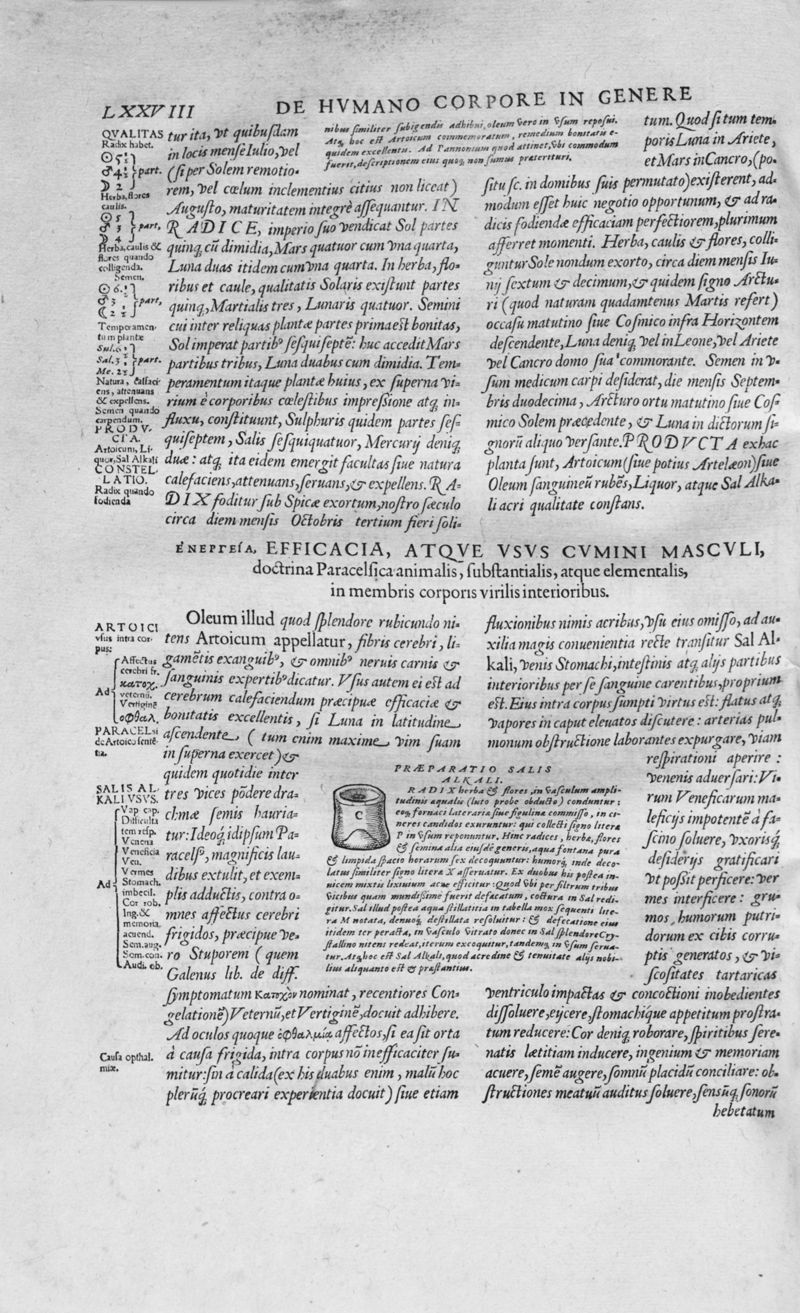 LXXVIII
DE HVMANO CORPORE IN GENERE
QVALITAS
Radix habet.
☉ 5 1/2
♂ 4 1/4 part.
☽ 2 1/4
Herba, flores
caulis.
☉ 5
♂ 3 part,
☽ 4
Herba, caulis &
flores quando
colligenda.
Semen.
☉ 6
♂ 3 part,
☾ 2 1/2
Temperamen-
tum plantæ
Sul. 6
Sal. 3 part.
Me. 2
Natura, calfaci-
ens, attenuans
& expellens.
Semen quando
carpendum.
PRODV-
CTA.
Artoicum, Li-
quor, Sal Alkali
CONSTEL-
LATIO.
Radix quando
fodienda
tur ita, vt quibusdam
in locis mense Iulio, vel
(si per Solem remotio-
rem, vel cœlum inclementius citius non liceat)
Augusto, maturitatem integrè assequantur. IN
RADICE, imperio suo vendicat Sol partes
quinq; cũ dimidia, Mars quatuor cum vna quarta,
Luna duas itidem cum vna quarta. In herba, flo-
ribus et caule, qualitatis Solaris existunt partes
quinq, Martialis tres, Lunaris quatuor. Semini
cui inter reliquas plantæ partes prima est bonitas,
Sol imperat partibꝰ sesquiseptē: huc accedit Mars
partibus tribus, Luna duabus cum dimidia. Tem-
peramentum itaque plantæ huius, ex superna vi-
rium è corporibus cœlestibus impressione atq; in-
fluxu, constituunt, Sulphuris quidem partes ses-
quiseptem, Salis sesquiquatuor, Mercurij deniq;
duæ: atq; ita eidem emergit facultas siue natura
calefaciens, attenuans, seruans, & expellens. RA-
DIX foditur sub Spicæ exortum, nostro sæculo
circa diem mensis Octobris tertium fieri soli-
nibus similiter subigendis adhibui, oleum vero in vsum reposui.
Atq; hoc est Artoicum commemoratum, remedium bonitatis e-
quidem excellentis. Ad Pannonium quod attinet, vbi commodum
fuerit, descriptionem eius quoq; non sumus præterituri.
tum. Quod si tum tem-
poris Luna in Ariete,
et Mars in Cancro, (po-
situ sc. in domibus suis permutato) existerent, ad-
modum esset huic negotio opportunum, & ad ra-
dicis fodiendæ efficaciam perfectiorem, plurimum
afferret momenti. Herba, caulis & flores, colli-
guntur Sole nondum exorto, circa diem mensis Iu-
nij sextum & decimum, & quidem signo Arctu-
ri (quod naturam quadamtenus Martis refert)
occasu matutino siue Cosmico infra Horizontem
descendente, Luna deniq; vel in Leone, vel Ariete
vel Cancro domo sua commorante. Semen in v-
sum medicum carpi desiderat, die mensis Septem-
bris duodecima, Arcturo ortu matutino siue Cos-
mico Solem præcedente, & Luna in dictorum si-
gnorũ aliquo versante. PRODVCTA ex hac
planta sunt, Artoicum (siue potius Artelæon) siue
Oleum sanguineũ rubẽs, Liquor, atque Sal Alka-
li acri qualitate constans.
ἐνεργεία, EFFICACIA, ATQVE VSVS CVMINI MASCVLI,
doctrina Paracelsica animalis, substantialis, atque elementalis,
in membris corporis virilis interioribus.
ARTOICI
vsus intra cor-
pus:
Ad
Affectus
cerebri fr.
κατοχ.
veternũ.
Vertiginẽ
οφθαλ.
PARACELsi
de Artoico sentē-
tia.
SALIS AL-
KALI VSVS.
Ad
Vap cap.
Difficulta
tem resp.
Venena
Veneficia
Ven.
Vermes
Stomach.
imbecil.
Cor rob.
Ing. &
memoria
acuend.
Sem. aug.
Som. con.
Audi. ob.
Causa opthal-
miæ.
Oleum illud quod splendore rubicundo ni-
tens Artoicum appellatur, fibris cerebri, li-
gamẽtis exanguibꝰ, & omnibꝰ neruis carnis &
sanguinis expertibꝰ dicatur. Vsus autem ei est ad
cerebrum calefaciendum præcipuæ efficaciæ &
bonitatis excellentis, si Luna in latitudine
ascendente ( tum enim maxime vim suam
in superna exercet) &
quidem quotidie inter
tres vices põdere dra-
chmæ semis hauria-
tur: Ideoq; id ipsum Pa-
racelsꝰ, magnificis lau-
dibus extulit, et exem-
plis adductis, contra o-
mnes affectus cerebri
frigidos, præcipue ve-
ro Stuporem (quem
Galenus lib. de diff.
symptomatum κατοχὸν nominat, recentiores Con-
gelationẽ) Veternũ, et Vertiginẽ, docuit adhibere.
Ad oculos quoque ὀφθαλμία affectos, si ea sit orta
à causa frigida, intra corpus nõ inefficaciter su-
mitur: sin à calida (ex his duabus enim, malũ hoc
plerũq; procreari experientia docuit) siue etiam
PRÆPARATIO SALIS
ALKALI.
C
RADIX herba & flores, in vasculum ampli-
tudinis aqualis (luto probe obducto) conduntur;
eoq; fornaci laterariæ siue figulina commisso, in ci-
neres candidos exuruntur: qui collecti signo literæ
P in vsum reponuntur. Hinc radices, herba, flores
& semina alia eiusdē generis, aqua fontana pura
& limpida spacio horarum sex decoquuntur: humorq; inde deco-
latus similiter signo litera X asseruatur. Ex duobus his postea in-
uicem mixtis lixiuium acue efficitur: Quod vbi per filtrum tribus
vicibus quam mundissime fuerit defæcatum, coctura in Sal redi-
gitur. Sal illud postea aqua stillatitia in tabella mox sequenti lite-
ra M notata, denuoq; destillata resoluitur: & defæcatione eius
itidem ter peracta, in vasculo vitrato donec in Sal splendore Cry-
stallino nitens redeat, iterum excoquitur, tandemq; in vsum serua-
tur. Atq; hoc est Sal Alkali, quod acredine & tenuitate alijs nobi-
lius aliquanto est & præstantius.
fluxionibus nimis acribus, vsu eius omisso, ad au-
xilia magis conuenientia recte transitur Sal Al-
kali, venis Stomachi, intestinis atq; alijs partibus
interioribus per se sanguine carentibus, proprium
est. Eius intra corpus sumpti virtus est: flatus atq;
vapores in caput eleuatos discutere: arterias pul-
monum obstructione laborantes expurgare, viam
respirationi aperire:
venenis aduersari: Vi-
rum Veneficarum ma-
leficijs impotentẽ à fa-
scino soluere, vxorisq;
desiderijs gratificari
vt possit perficere: ver
mes interficere: gru-
mos, humorum putri-
dorum ex cibis corru-
ptis generatos, & vi-
scositates tartaricas
ventriculo impactas & concoctioni inobedientes
dissoluere, eijcere, stomachiq̃ue appetitum prostra-
tum reducere: Cor deniq; roborare, spiritibus sere-
natis lætitiam inducere, ingenium & memoriam
acuere, semẽ augere, somnũ placidũ conciliare: ob-
structiones meatuũ auditus soluere, sensũq; sonorũ
hebetatum